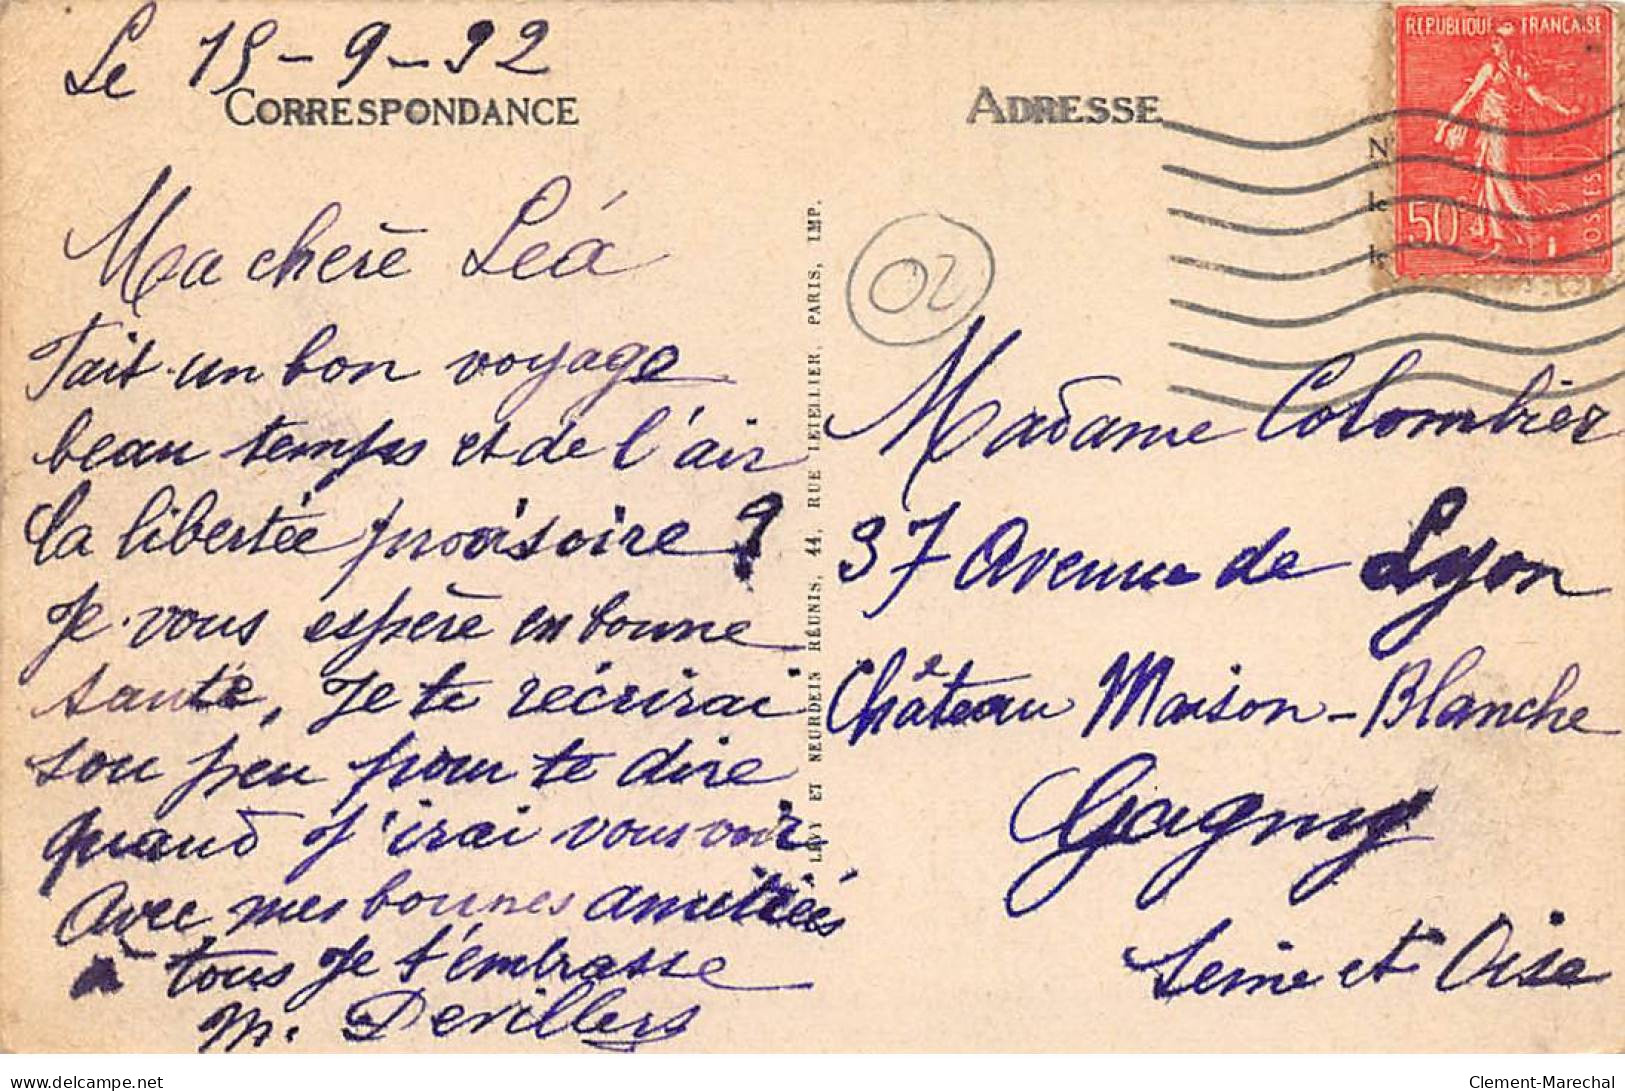 Le 15-9-32
CORRESPONDANCE
Ma chère Léa
Fait un bon voyage
beau temps et de l'air
la libertée provisoire ?
Je vous espère en bonne
santé, Je te récrirai
sou peu pour te dire
quand j'irai vous voir
Avec mes bonnes amitiées
à tous Je t'embrasse
M. Devillers
LÉVY ET NEURDEIN RÉUNIS, 44, RUE LETELLIER, PARIS, IMP.
ADRESSE
RÉPUBLIQUE FRANÇAISE
50
POSTES
02
Madame Colombier
37 Avenue de Lyon
Château Maison-Blanche
Gagny
Seine et Oise
delcampe.net
Clement-Marechal